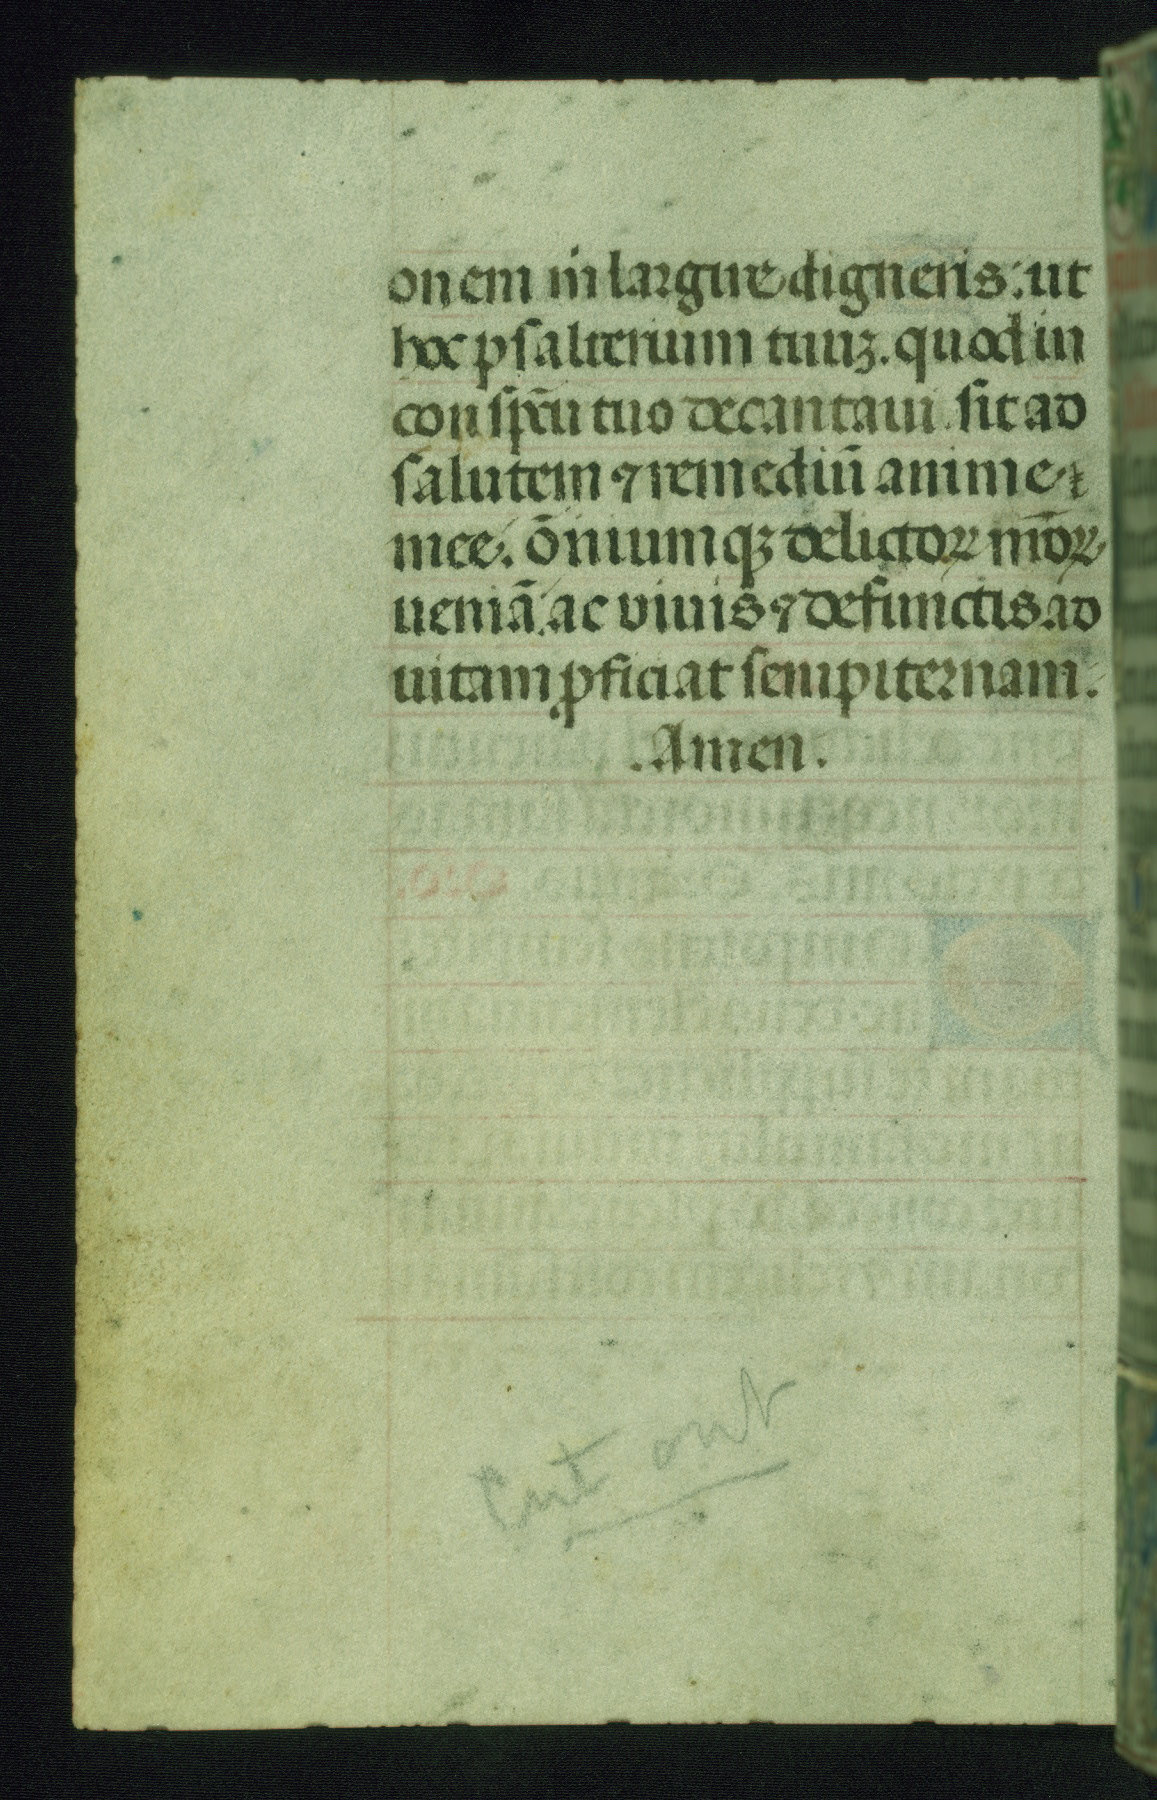 onem m̍ largire digneris: ut
hoc psalterium tuuꝫ. quod in
conspc̄tu tuo decantaui sit ad
salutem ⁊ remediū anime
mee. ōniumqꝫ delictoꝝ mōꝝ
ueniā ac viuis ⁊ defunctis ad
uitam ꝓficiat sempiternam.
.Amen.
Cut out